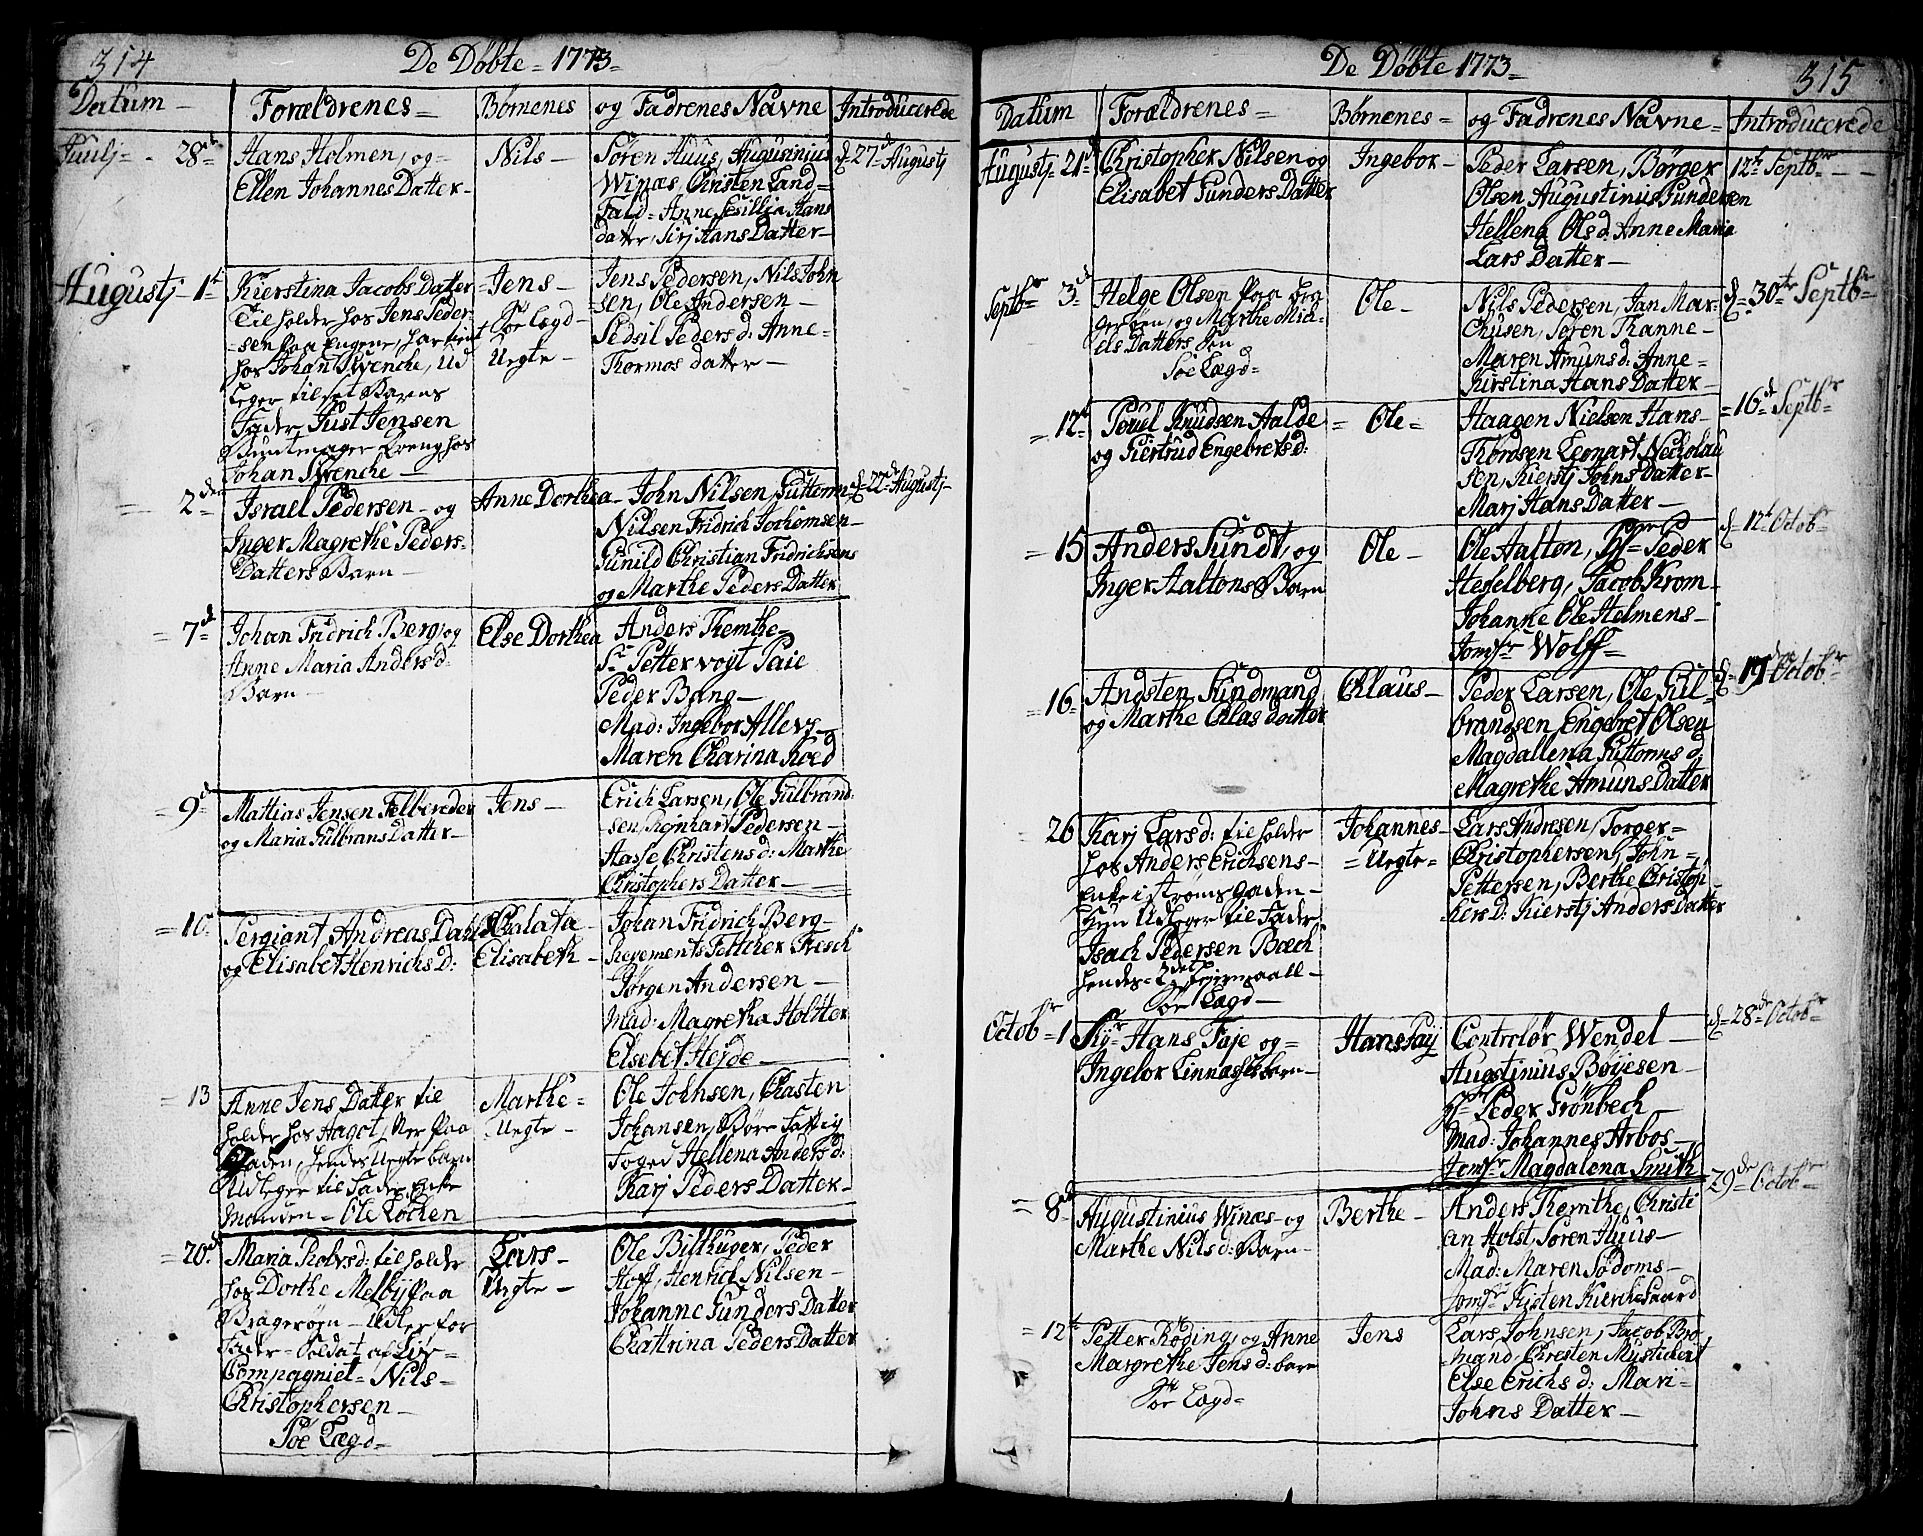 314
De Døbte = 1773=
Datum
Forældrenes=
Børnenes
og Fadrenes Navne
Introducerede
Juulj - 28de
Hans Holmen, og=
Ellen Johannes Datter-
Nils-
Søren Huus, Augusinius
Winæs, Christen Land=
Fald= Anne Sesillia Hans
datter, Sirj Hans Datter-
d= 27de Augustj
Augustj 1t
Kierstina Jacobs Datter
Til holder hos Jens Peder-
sen paa Engene, har tient
hos Johan Swenche, Ud
leger til sit Barns
Fader Just Jensen
Buntmager hos
Johan Swenche-
=Jens-
Søe Lægd-
Uegte-
Jens Pedersen, Nils John
sen, Ole Andersen-
Sedsil Peders d: Anne=
Thormos datter-
2den
Israel Pedersen- og
Inger Magrethe Peders-
Datters Barn-
Anne Dorthea-
John Nilsen, Guttorm
Nilsen Fridrich Jochomsen-
Gunild Christian Fridrichsens
og Marthe Peders Datter
d= 22de Augustj-
=7de
Johan Fridrich Berg, og
Anne Maria Anders d:
Barn-
Else Dorthea
Anders Themthe-
Sr Petter vogt Paie
Peder Bang-
Mad: Ingebor Allevs-
Maren Charina Koed
=9d
Mattias Jensen Felbereder
og Maria Gulbrans Datter-
Jens-
Erich Larsen, Ole Gulbrand:
sen, Reinhart Pedersen-
Aasse Christens d: Marthe
Christophers Datter-
=10
Sergiant Andreas Dahl
og Elisabet Henrichs D:
Malata-
Elisabeth-
Johan Fridrich Berg-
Regements Feltcher Gresch
Jørgen Andersen-
Mad: Magretha Holtter
Elsebet Hejde-
=13
Anne Jens Datter til
holder hos Aagot, Ner paa
Gaden, hendes Uegte barn
Udleger til Fader Enke
manden- Ole Lochen
Marthe=
Uegte-
Ole Johnsen, Chasten
Johansen, Børe Fattig
Foged Hellena Anders d:
Karj Peders Datter-
=20d
Maria Rolvs d: til holder
hos Dorthe Melby paa
Bragerøen- Udler for
Fader- Soldat af Liv-
Compagniet- Nils-
Christophersen-
Søe Lægd-
Lars-
Uegte-
Ole Bilthuger, Peder
Hoff, Henrich Nilsen-
Johanne Gunders Datter
Chattrina Peders Datter
De Døbte 1773=
315
Datum
Forældrenes=
Børnenes=
og Fadrenes Navne=
Introducerede
Augustj= 21d
Christopher Nilsen og
Elisabet Gunders Datter
Ingebor-
Peder Larsen, Børger
Olsen Augustinius Gundersen
Hellena Ols d: Anne Maria
Lars Datter-
12te Septbr- -
Septbr 3d
Helge Olsen paa Bra
gerøen, og Marthe Mich-
els Datters Søn
Søe Lægd=
Ole-
Nils Pedersen, Jan Mar-
chusen, Søren Thanne-
Maren Amuns d: Anne-
Kirstina Hans Datter-
d= 30te Septbr
=12t
Pouel Knudsen Aalde
og Giertrud Engebrets d:
=Ole=
Haagen Nielsen Hans-
Thordsen Leonart Neckolau
sen, Kierstj Johns Datter-
Marj Hans Datter-
=16d Septbr
=15
Anders Sundt, og
Inger Aaltons Barn
Ole-
Ole Aalton, Hr Peder
Heselberg, Jacob Krom-
Johanne Ole Helmens-
Jomfr Wolff=
d= 12t Octob=
=16=
Andsten Sundmand
og Marthe Clas datter
Claus-
Peder Larsen, Ole Gul-
brandsen Engebret Olsen
Magdallena Guttorms d:
Magrethe Amuns Datter
d= 19de Octobr
26
Karj Lars d: til holder
hos Anders Erichsens-
Enke i Strøms Gaden-
Hun Udleger til Fader
Isach Pedersen Bæch
hendes 3det Leiermaall-
Søe Lægd-
Johannes-
=Uegte=
Lars Andresen, Torger=
Christophersen, John=
Pettersen, Berthe Christop
hers D: Kierstj Anders Datter
Octobr =1
Sgr Hans Faje og=
Ingebor Linnaas barn-
Hans Faij
Controlør Wendel-
Augstinius Bøyesen-
Hr Peder Grønbech
Mad: Johannes Arbos-
Jomfr Magdalena Smith
d= 28de Octobr
=8de
Augustinius Winæs- og
Marthe Nils d: Barn-
Berthe-
Anders Themthe, Christi
an Holst, Søren Huus-
Mad: Maren Sødoms-
Jomfr Kisten Kierchegaard
29de Octobr
=12te
Petter Røding, og Anne
Margrethe Jens d: barn
Søe Lægd=
Jens
Lars Johnsen, Jacob Bro
mand, Chresten
Else Erichs d: Mari-
Johns Datter-